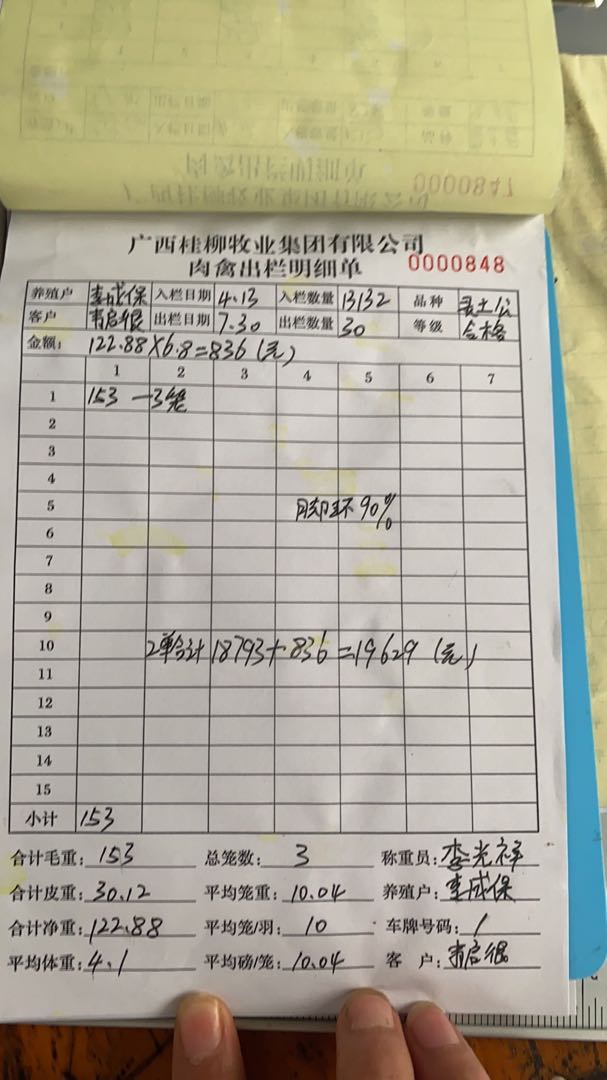 0000847
广西桂柳牧业集团有限公司
肉禽出栏明细单 0000848
养殖户 李成保 入栏日期 4.13 入栏数量 13132 品种
客户 韦启银 出栏日期 7.30 出栏数量 30 等级 合格
金额: 122.88×6.8=836(元)
1 2 3 4 5 6 7
1 153 一3笼
2
3
4
5 脚环90%
6
7
8
9
10 2单合计18793+836=19629(元)
11
12
13
14
15
小计 153
合计毛重: 153 总笼数: 3 称重员: 李光祥
合计皮重: 30.12 平均笼重: 10.04 养殖户: 李成保
合计净重: 122.88 平均笼/羽: 10 车牌号码: /
平均体重: 4.1 平均磅/笼: 10.04 客 户: 韦启银